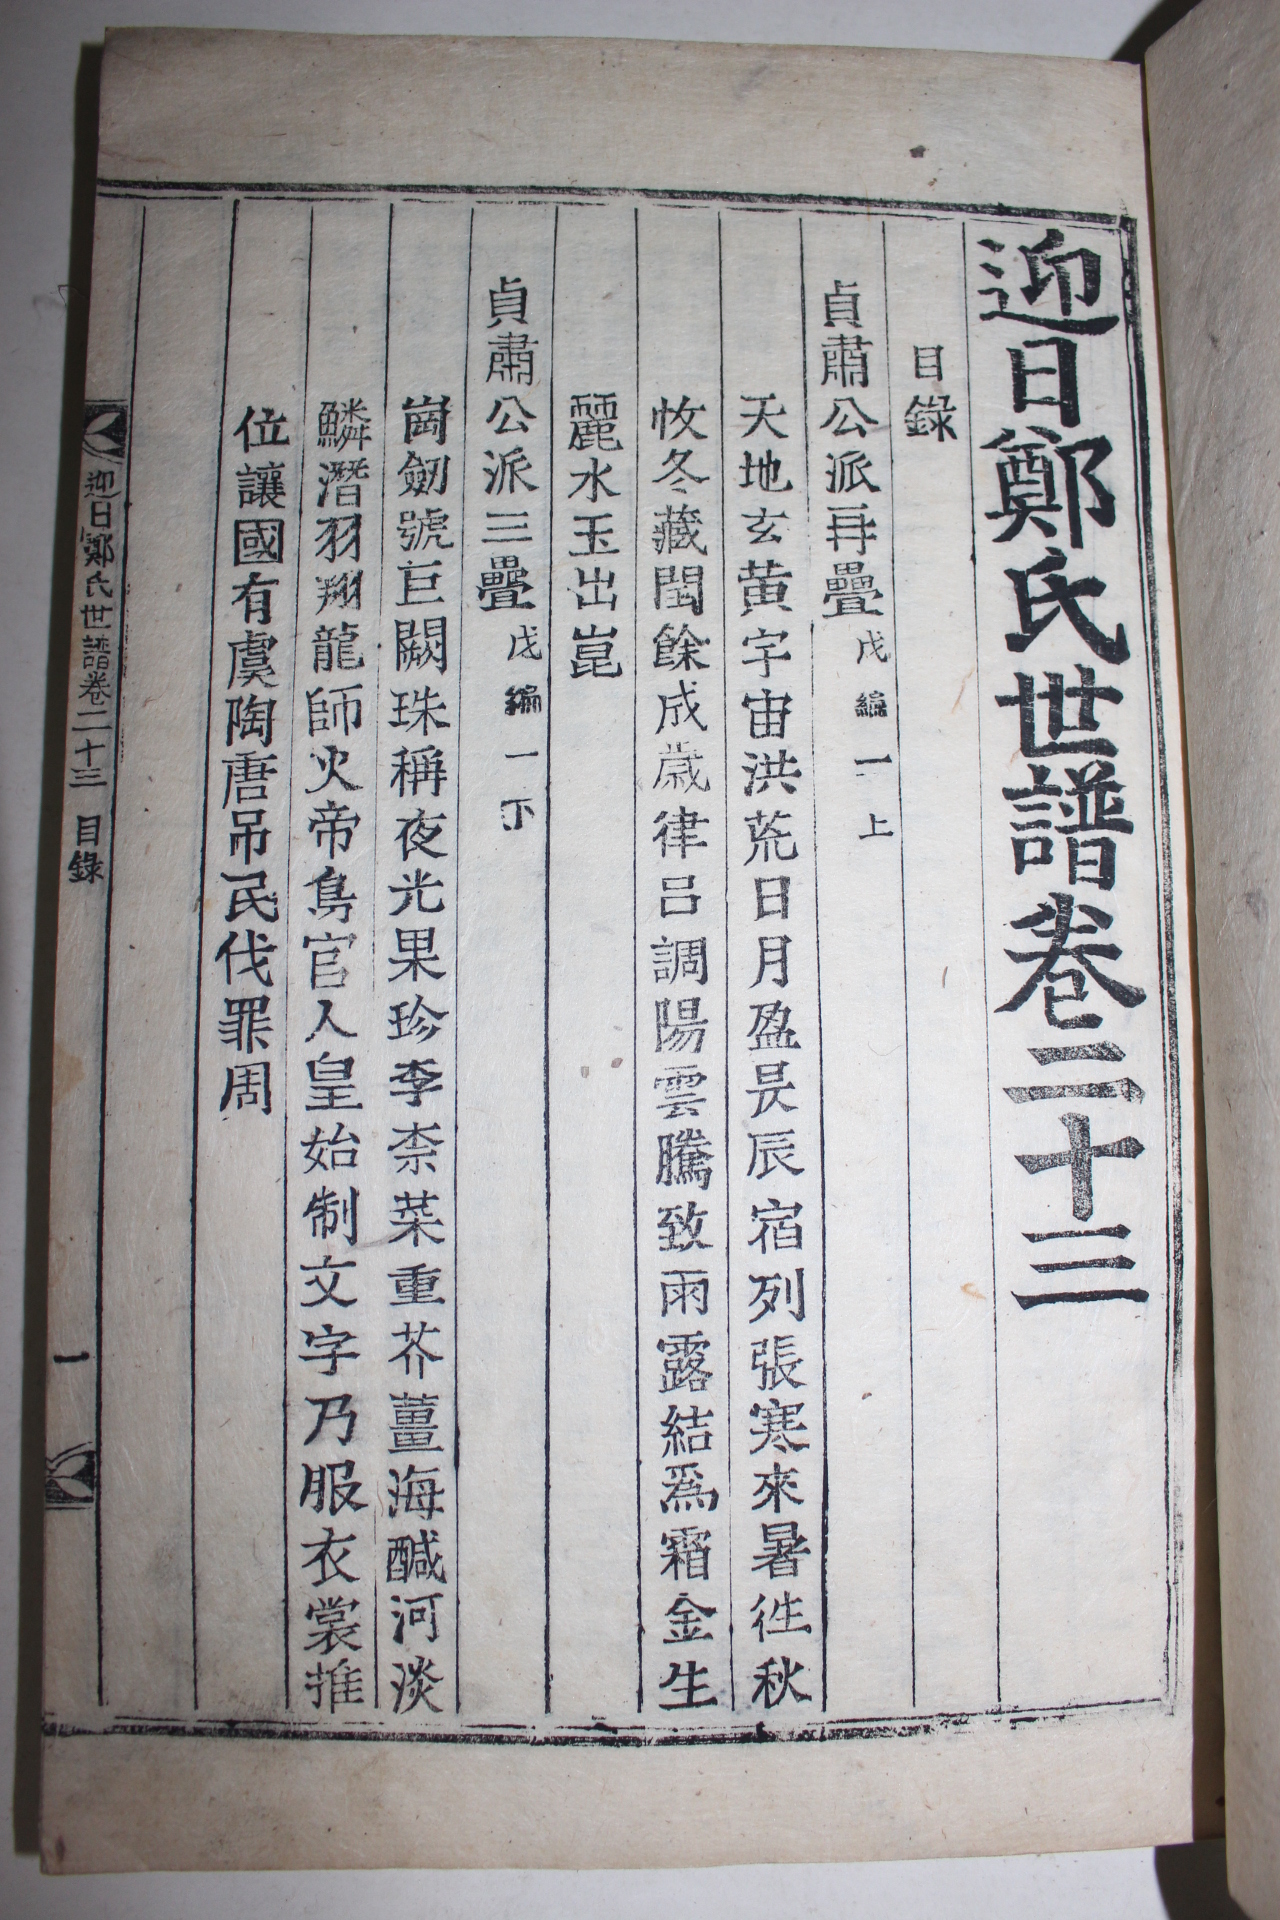 迎日鄭氏世譜卷二十三
目錄
貞肅公派再疊 戊編一上
天地玄黃宇宙洪荒日月盈昃辰宿列張寒來暑徃秋
收冬藏閏餘成歲律呂調陽雲騰致雨露結爲霜金生
麗水玉出崑
貞肅公派三疊 戊編一下
崗劒號巨闕珠稱夜光果珍李柰菜重芥薑海醎河淡
鱗潛羽翔龍師火帝鳥官人皇始制文字乃服衣裳推
位讓國有虞陶唐吊民伐罪周
迎日鄭氏世譜卷二十三 目錄 一